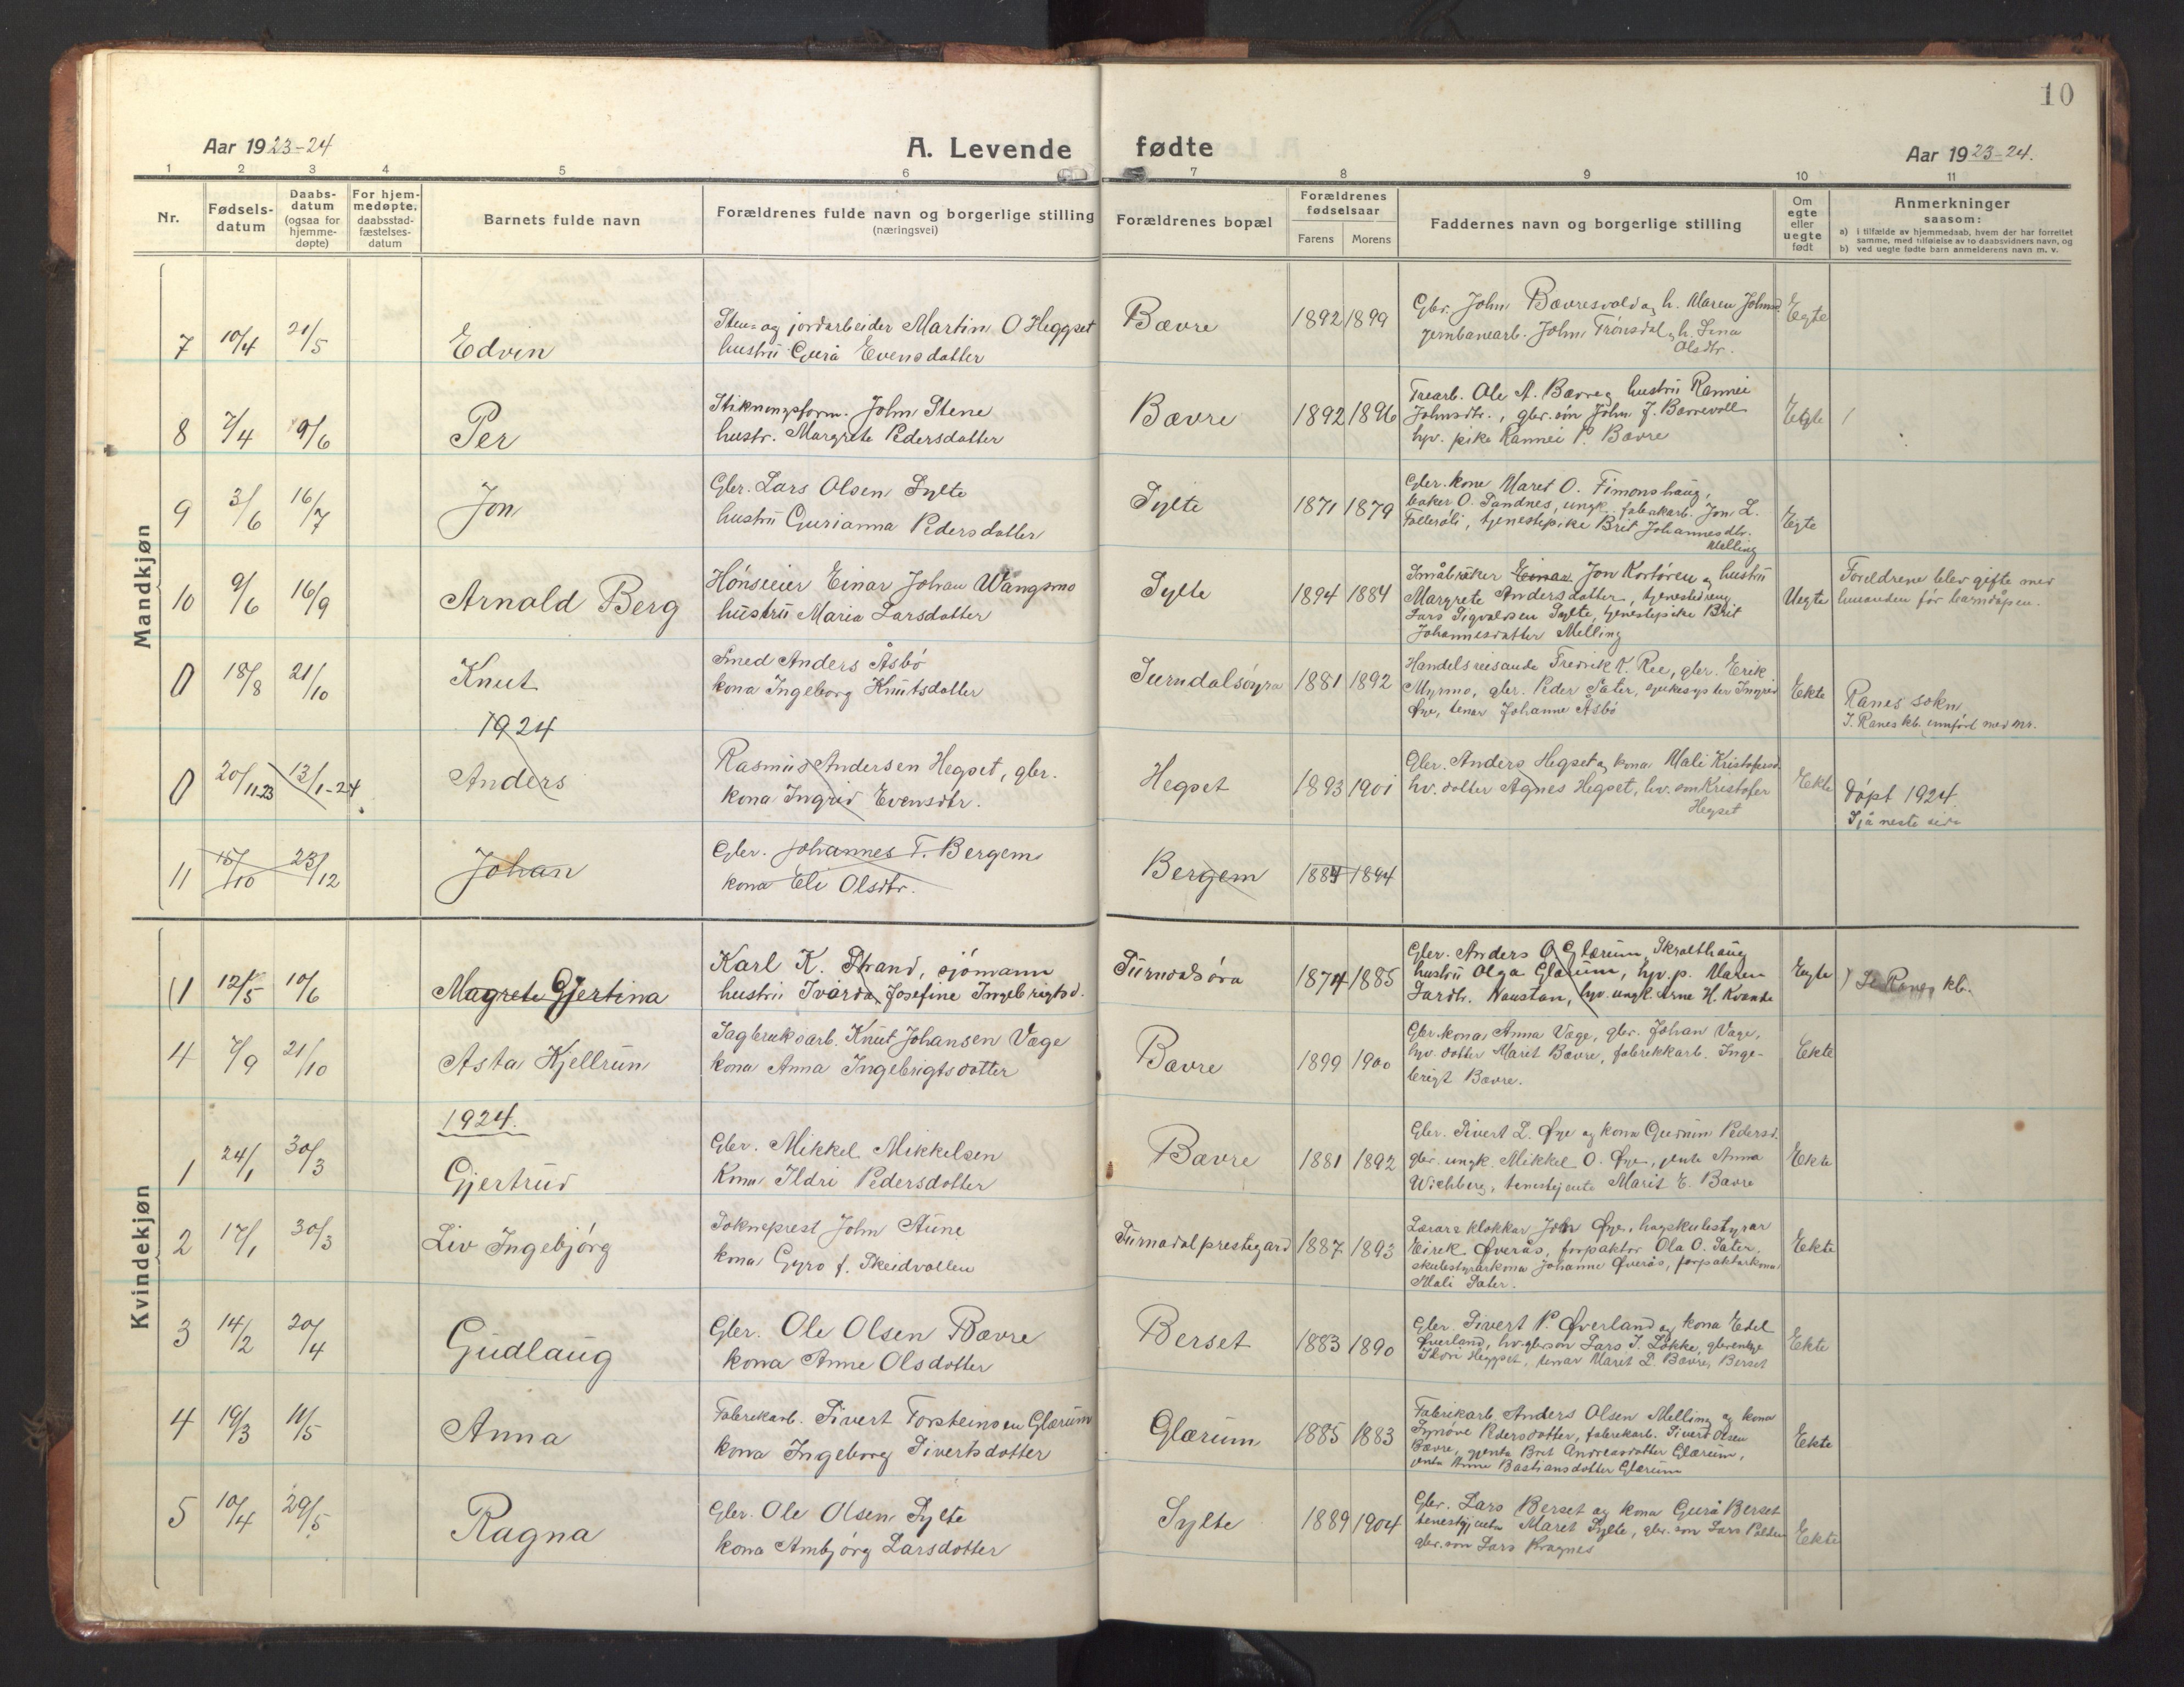 10
Aar 1923-24
A. Levende fødte
Aar 1923-24.
1 2 3 4 5 6 7 8 9 10 11
Nr.
Fødselsdatum
Daabsdatum (ogsaa for hjemmedøpte)
For hjemmedøpte, daabsstadfæstelsesdatum
Barnets fulde navn
Forældrenes fulde navn og borgerlige stilling
(næringsvei)
Forældrenes bopæl
Forældrenes fødselsaar
Farens Morens
Faddernes navn og borgerlige stilling
Om egte eller uegte født
Anmerkninger
saasom:
a) i tilfælde av hjemmedaab, hvem der har forrettet
samme, med tilføielse av to daabsvidners navn, og
b) ved uegte fødte barn anmelderens navn m. v.
Mandkjøn
7 10/4 21/5 Edvin
Sten- og jordarbeider Martin O. Heggset
hustru Gura Evensdatter
Bævre 1892 1899
Gbr. John Bævresvold og h. Maren Johnsd.
jernbanearb. John Trønsdal, h. Lina
Olsdtr.
Egte
8 7/4 9/6 Per
Stikningsform. John Stene
hustr. Margrete Pedersdatter
Bævre 1892 1896
Trearb. Ole A. Bævre og hustru Rannei
Johnsdtr., gbr. søn John J. Bævrevoll
hjv. pike Rannei P. Bævre
Egte
9 3/6 16/7 Jon
Gbr. Lars Olsen Sylte
hustru Gurianna Pedersdatter
Sylte 1871 1879
Gbr. kone Maret O. Simonshaug,
baker O. Sandnes, ungk. fabrikarb. Jon L.
tjenestepike Brit Johannesdtr.
Melling
Egte
10 9/6 16/9 Arnold Berg
Hønseeier Einar Johan Wangsmo
hustru Maria Larsdatter
Sylte 1894 1884
Småbruker Einar Jon Kortøren og hustru
Margrete Andersdatter, tjenestedreng
Lars Sigvaldsen Sylte, tjenestepike Brit
Johannesdatter Melling
Uegte
Foreldrene blev gifte med
hinanden før barndåpen.
0 18/8 21/10 Knut
Smed Anders Åsbø
kona Ingeborg Knutsdatter
Surndalsøyra 1881 1892
Handelsreisande Fredrik K. Ree, gbr. Erik
Myrmo, gbr. Peder Sæter, sjukesyster Ingrid
Øye, tenar Johanne Åsbø
Ekte
Ranes sokn
I Ranes kb. innført med nr.
1924
0 20/11-23 13/1-24 Anders
Rasmus Andersen Hegset, gbr.
kona Ingrid Evensdtr.
Hegset 1893 1901
Gbr. Anders Hegset og kona Mali Kristofersd.
hv. dotter Agnes Hegset, hv. søn Kristofer
Hegset
Ekte
Døpt 1924.
Sjå neste side
11 15/10 23/12 Johan
Gbr. Johannes T. Bergem
kona Eli Olsdtr.
Bergem 1884 1894
Kvindekjøn
(1 12/5 10/6 Magrete Gjertina
Karl K. Strand, sjømann
hustru Ivarda Josefine Ingebrigtsd.
Surndalsøra 1874 1885
Gbr. Anders O. Glærum, Skralthaug
hustru Olga Glærum, hjv. p. Maren
Lardtr. Naustan, hjv. ungk. Arne H. Kvande
Egte ) Se Ranes kb.
4 7/9 21/10 Asta Kjellrun
Sagbruksarb. Knut Johansen Væge
kona Anna Ingebrigtsdotter
Bævre 1899 1900
Gbr. kona Anna Væge, gbr. Johan Væge,
hjv. dotter Marit Bævre, fabrikkarb. Inge-
brigt Bævre.
Ekte
1924.
1 24/1 30/3 Gjertrud
Gbr. Mikkel Mikkelsen
Kona Ildri Pedersdotter
Bævre 1881 1892
Gbr. Sivert L. Øye og kona Gudrun Pedersd.
gbr. ungk. Mikkel O. Øye, jenta Anna
Wichberg, tenestejenta Marit E. Bævre
Ekte
2 17/1 30/3 Liv Ingebjørg
Sokneprest John Aune
kona Gyro f. Skeidvollen
Surnadal prestegard 1887 1893
Lærar o klokkar John Øye, hagskulestyrar
Eirik Øverås, forpaktar Ola O. Sæter,
skulestyrarkona Johanne Øverås, forpaktarkona
Mali Sæter.
Ekte
3 14/2 20/4 Gudlaug
Gbr. Ole Olsen Bævre
kona Anne Olsdotter
Berset 1883 1890
Gbr. Sivert P. Øverland og kona Edel
Øverland, hv. gbr. søn Lars J. Løkke, gbr. enkje
Heggset, tenar Marit L. Bævre, Berset
Ekte
4 19/3 11/5 Anna
Fabrikarb. Sivert Torsteinsen Glærum
kona Ingeborg Sivertsdotter
Glærum 1885 1883
Fabrikarb. Anders Olsen Melling og kona
Synøve Pedersdotter, fabrikarb. Sivert Olsen
Bævre, gjenta Brit Andreasdotter Glærum,
jenta Anne Bastiansdotter Glærum
Ekte
5 10/4 29/5 Ragna
Gbr. Ole Olsen Sylte
kona Ambjørg Larsdotter
Sylte 1889 1904
Gbr. Lars Berset og kona Gurå Berset
tenestejenta Maret Sylte, gbr. søn Lars
gbr. søn Lars Kragnes
Ekte